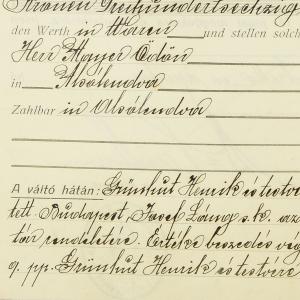 Kronen Dreihundertsechzig
den Werth in Waren und stellen solch
Herr Mayer Ödön
in Alsólendva
Zahlbar in Alsólendva
A váltó hátán: Grünhut Henrik és testvé
tett Budapest, Josef Löwy s. k. az
tár rendeletére. Értéke beszedés vég
g. pp. Grünhut Henrik és testvére